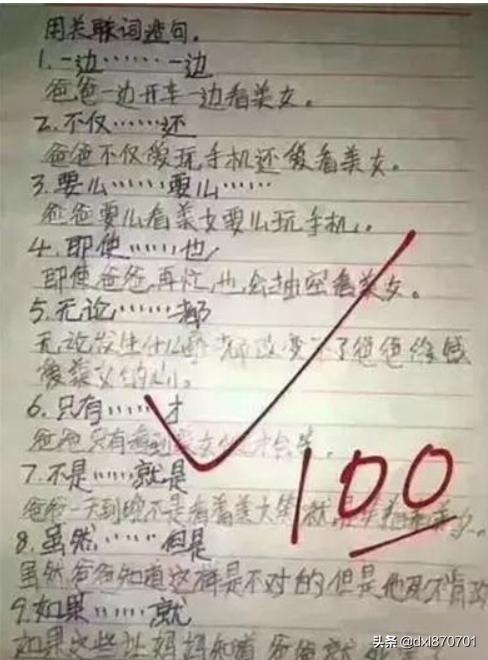 用关联词造句。
1.一边……一边
爸爸一边开车一边看美女。
2.不仅……还
爸爸不仅爱玩手机还爱看美女。
3.要么……要么……
爸爸要么看美女要么玩手机。
4.即使……也
即使爸爸再忙,也会抽空看美女。
5.无论……都
无论发生什么事都改变不了爸爸
爱美女的心。
6.只有……才
爸爸只有看到美女才会笑。
7.不是……就是
爸爸一天到晚不是看着美女笑就是
8.虽然……但是
虽然爸爸知道这样是不对的但是他死不肯改
9.如果……就
如果这些让妈妈知道 爸爸就
100
头条 @dxl870701